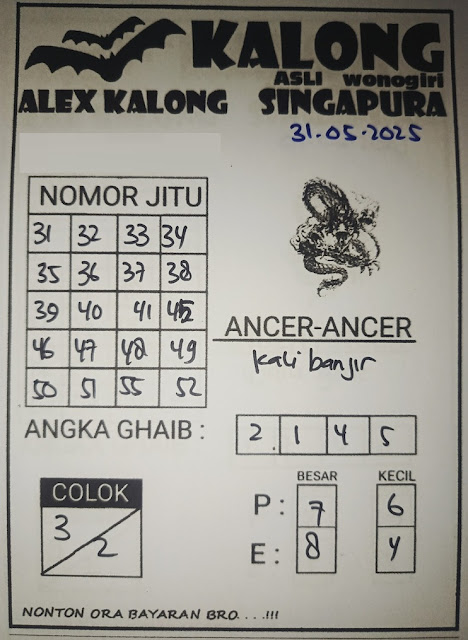 KALONG
ASLI wonogiri
ALEX KALONG SINGAPURA
31.05.2025
NOMOR JITU
31 32 33 34
35 36 37 38
39 40 41 45
46 47 48 49
50 51 55 52
ANCER-ANCER
kali banjir
ANGKA GHAIB : 2.1 4 5
BESAR KECIL
COLOK
P : 7 6
3/2
E : 8 4
NONTON ORA BAYARAN BRO. . . .!!!